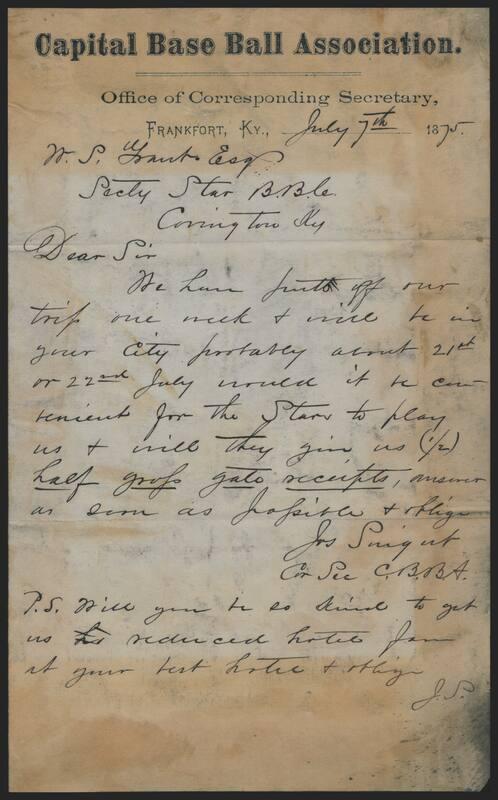 Capital Base Ball Association.
Office of Corresponding Secretary,
FRANKFORT, KY., July 7th 1875.
W. S. Grant Esq
Secty Star B.B.C.
Covington Ky
Dear Sir
We have put off our
trip one week & will be in
your City probably about 21st
or 22nd July would it be con
venient for the Stars to play
us & will they give us (1/2)
half gross gate receipts, answer
as soon as possible & oblige
Jos
Cor Sec C.B.B.A.
P.S. Will you be so kind to get
us reduced hotel fare
at your best hotel & oblige
J.S.